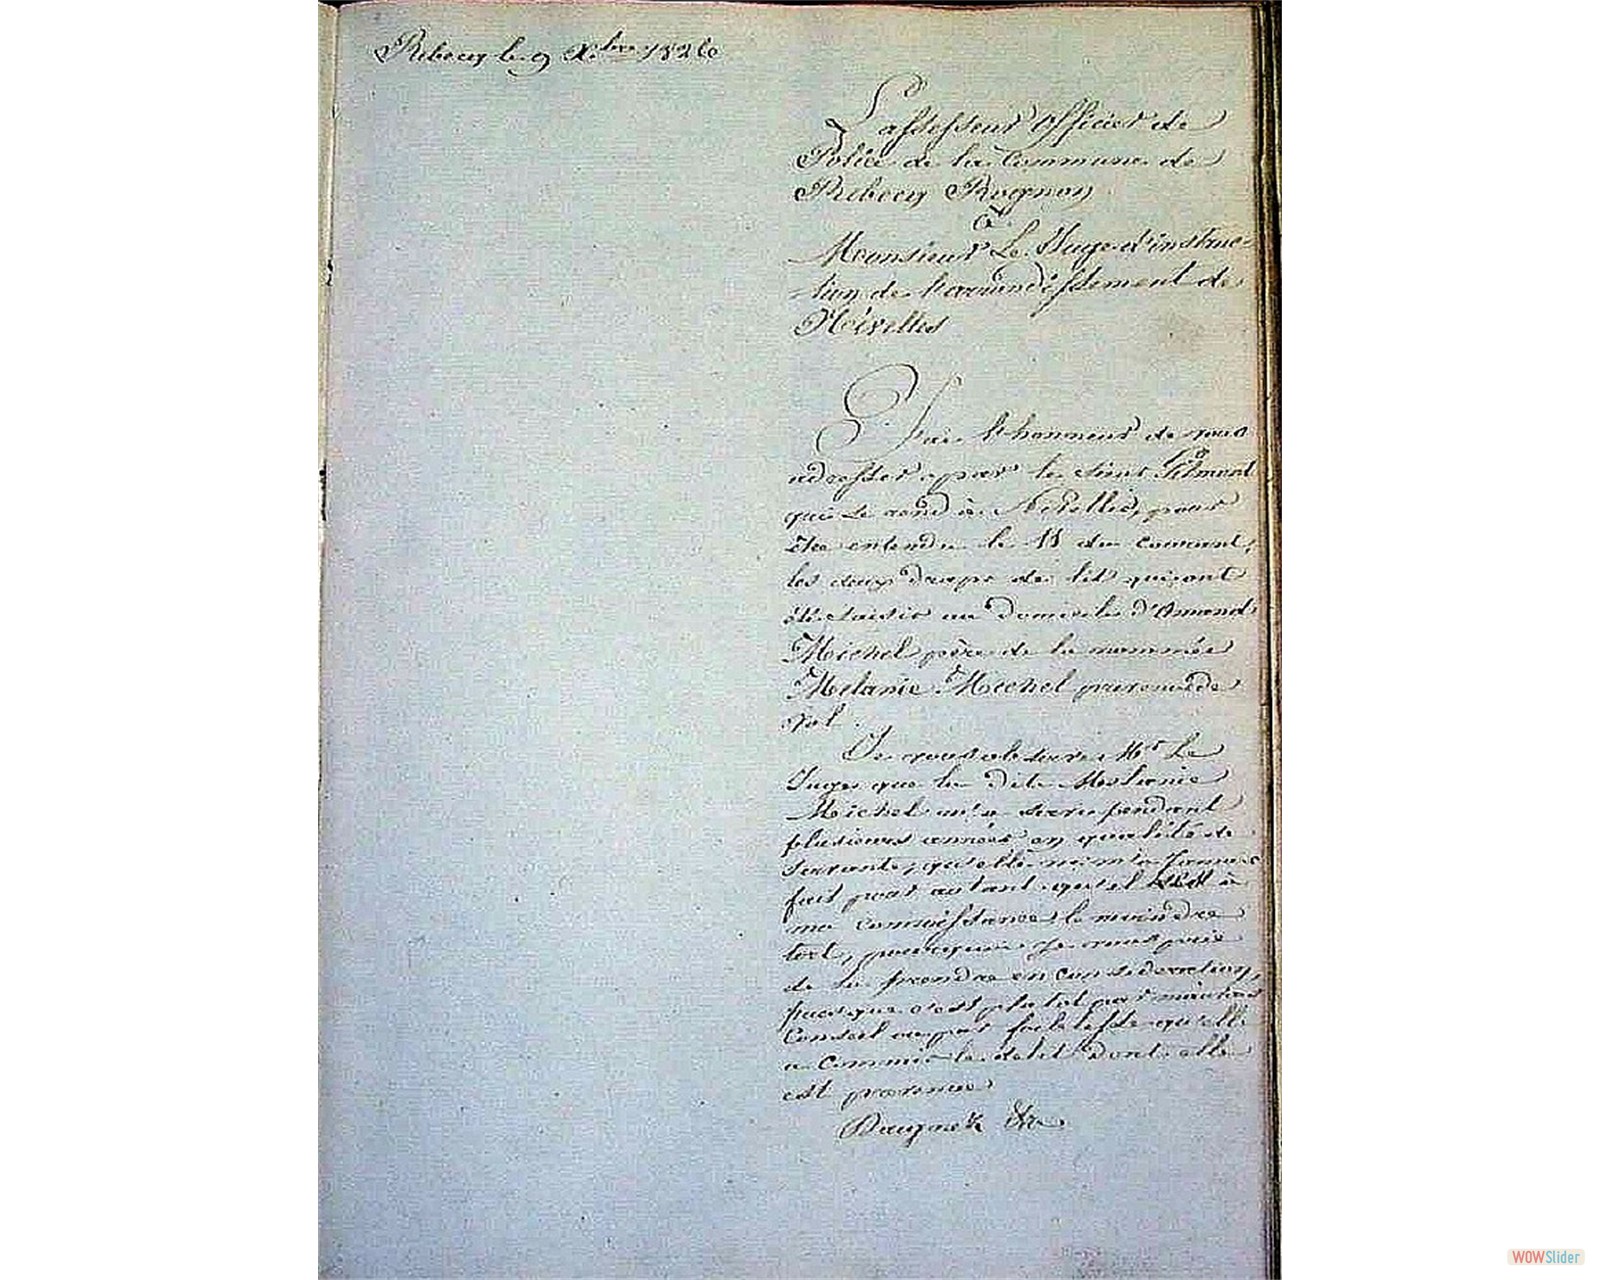 Rebecq le 9 Xbre 1826
L'assesseur officier de
Police de la Commune de
Rebecq Rognon
à
Monsieur Le Juge d'instruc-
tion de l'arrondissement de
Nivelles
J'ai l'honneur de vous
adresser par le sieur
qui se rend à Nivelles, pour
être entendu le 11 du courant,
les deux draps de lit qui ont
été saisis au domicile d'Amand
Michel père de la nommée
Melanie Michel prévenue de
vol.
Je vous observe Mr Le
Juge que la dite Melanie
Michel m'a servi pendant
plusieurs années en qualité de
servante, qu'elle ne m'a jamais
fait pour autant qu'il est à
ma connoissance le moindre
tort, pourquoi je vous prie
de la prendre en consideration,
puisque c'est plutot par mauvais
Conseil ou par foiblesse qu'elle
a commis le delit dont elle
est prevenue
Daignez &a
WOWSlider